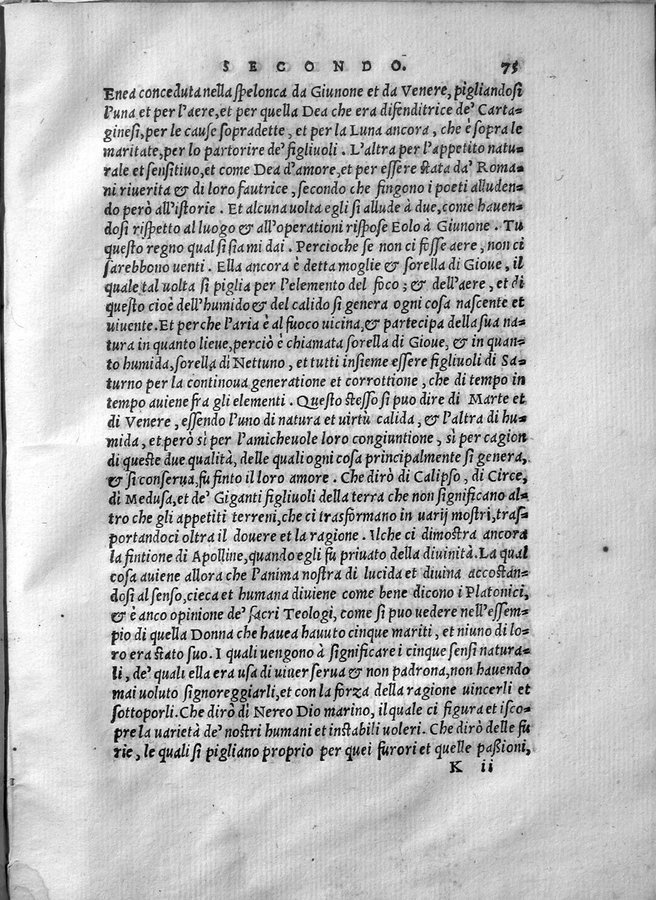 SECONDO. 75
Enea conceduta nella spelonca da Giunone et da Venere, pigliandosi
l'una et per l'aere, et per quella Dea che era difenditrice de' Carta-
ginesi, per le cause sopradette, et per la Luna ancora, che è sopra le
maritate, per lo partorire de' figliuoli. L'altra per l'appetito natu-
rale et sensitiuo, et come Dea d'amore, et per essere stata da' Roma-
ni riuerita & di loro fautrice, secondo che fingono i poeti alluden-
do però all'istorie. Et alcuna uolta egli si allude à due, come hauen-
dosi rispetto al luogo & all'operationi rispose Eolo à Giunone. Tu
questo regno qual si sia mi dai. Percioche se non ci fosse aere, non ci
sarebbono uenti. Ella ancora è detta moglie & sorella di Gioue, il
quale tal uolta si piglia per l'elemento del foco; & dell'aere, et di
questo cioè dell'humido & del calido si genera ogni cosa nascente et
uiuente. Et perche l'aria è al fuoco uicina, & partecipa della sua na-
tura in quanto lieue, perciò è chiamata sorella di Gioue, & in quan-
to humida, sorella di Nettuno, et tutti insieme essere figliuoli di Sa-
turno per la continoua generatione et corrottione, che di tempo in
tempo auiene fra gli elementi. Questo stesso si puo dire di Marte et
di Venere, essendo l'uno di natura et uirtù calida, & l'altra di hu-
mida, et però sì per l'amicheuole loro congiuntione, sì per cagion
di queste due qualità, delle quali ogni cosa principalmente si genera,
& si conserua, fu finto il loro amore. Che dirò di Calipso, di Circe,
di Medusa, et de' Giganti figliuoli della terra che non significano al-
tro che gli appetiti terreni, che ci trasformano in uarij mostri, tras-
portandoci oltra il douere et la ragione. Ilche ci dimostra ancora
la fintione di Apolline, quando egli fu priuato della diuinità. La qual
cosa auiene allora che l'anima nostra di lucida et diuina accostan-
dosi al senso, cieca et humana diuiene come bene dicono i Platonici,
& è anco opinione de' sacri Teologi, come si puo uedere nell'essem-
pio di quella Donna che hauea hauuto cinque mariti, et niuno di lo-
ro era stato suo. I quali uengono à significare i cinque sensi natura-
li, de' quali ella era usa di uiuer serua & non padrona, non hauendo
mai uoluto signoreggiarli, et con la forza della ragione uincerli et
sottoporli. Che dirò di Nereo Dio marino, il quale ci figura et isco-
pre la uarietà de' nostri humani et instabili uoleri. Che dirò delle fu
rie, le quali si pigliano proprio per quei furori et quelle passioni,
K ii